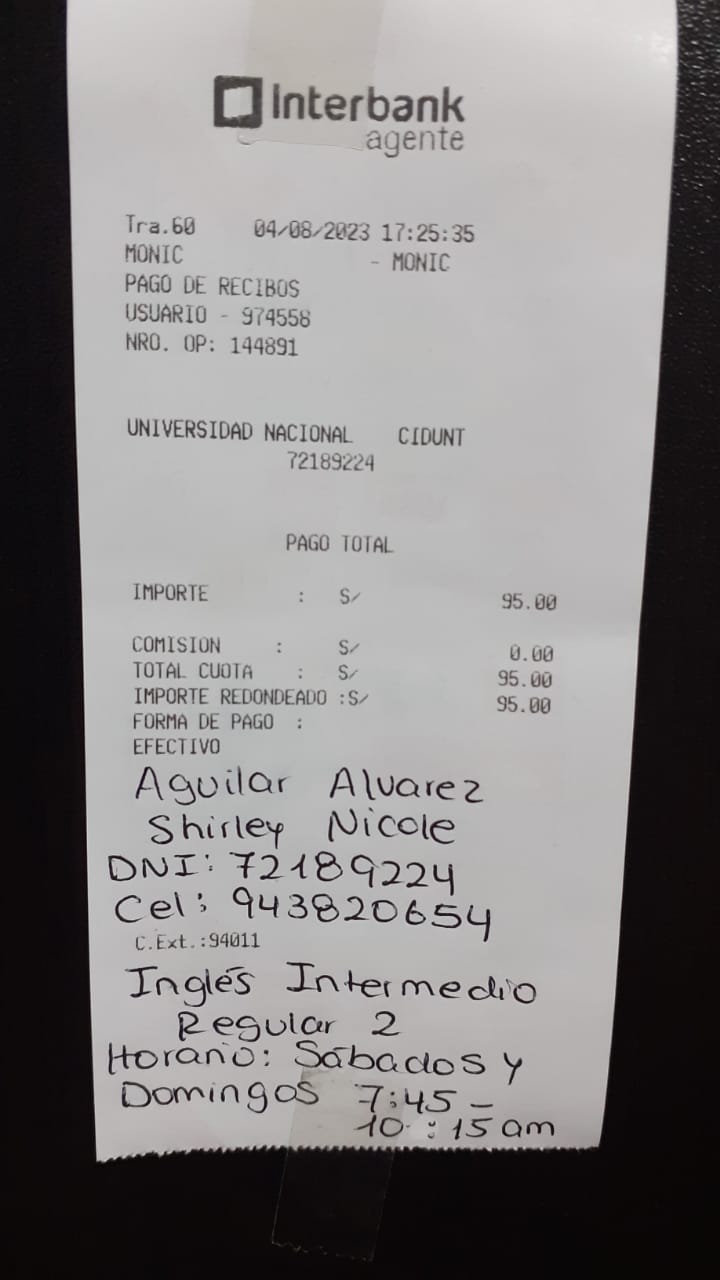 Interbank
agente
Tra.60 04/08/2023 17:25:35
MONIC - MONIC
PAGO DE RECIBOS
USUARIO - 974558
NRO. OP: 144891
UNIVERSIDAD NACIONAL CIDUNT
72189224
PAGO TOTAL
IMPORTE : S/ 95.00
COMISION : S/ 0.00
TOTAL CUOTA : S/ 95.00
IMPORTE REDONDEADO :S/ 95.00
FORMA DE PAGO :
EFECTIVO
Aguilar Alvarez
Shirley Nicole
DNI: 72189224
Cel: 943820654
C.Ext.:94011
Inglés Intermedio
Regular 2
Horario: Sábados y
Domingos 7:45 -
10 : 15 am